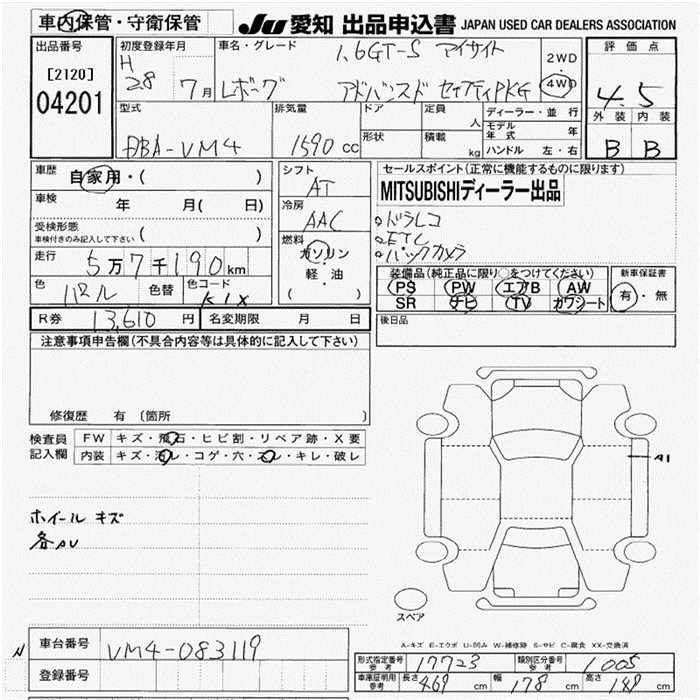 車内保管・守衛保管
JU 愛知 出品申込書 JAPAN USED CAR DEALERS ASSOCIATION
出品番号
[2120]
04201
初度登録年月
H
28 7月
車名・グレード
1.6GT-S アイサイト
レボーグ アドバンスド セイフティPKG
2WD
4WD
評価点
4.5
外装 内装
B B
型式
DBA-VM4
排気量
1590 cc
ドア
形状
定員
人
積載
kg
ディーラー・並行
モデル年式 年
ハンドル 左・右
車歴
自家用・( )
車検 年 月( 日)
受検形態
車検付きのみ記入して下さい ( )
走行
5万7千190km
色 パール 色替 色コード K1X
シフト
AT
冷房
AAC
燃料
ガソリン
軽・油
( ・ )
セールスポイント(正常に機能するものに限ります)
MITSUBISHIディーラー出品
。ドラレコ
。ETC
。バックカメラ
装備品(純正品に限り○をつけてください)
PS PW エアB AW
SR ナビ TV カワシート
新車保証書
有・無
R券 13,610 円 名変期限 月 日
後日品
注意事項申告欄(不具合内容等は具体的に記入して下さい)
修復歴 有 〔箇所 〕
検査員
記入欄
FW キズ・飛石・ヒビ割・リペア跡・X要
内装 キズ・汚レ・コゲ・穴・スレ・キレ・破レ
ホイール キズ
各AU
A1
スペア
A-キズ E-エクボ U-凹み W-補修跡 S-サビ C-腐食 XX-交換済
N
車台番号 VM4-083119
登録番号
形式指定番号 参考 17723 類別区分番号 参考 1005
車庫証明用 参考 長さ 469 cm 幅 178 cm 高さ 149 cm